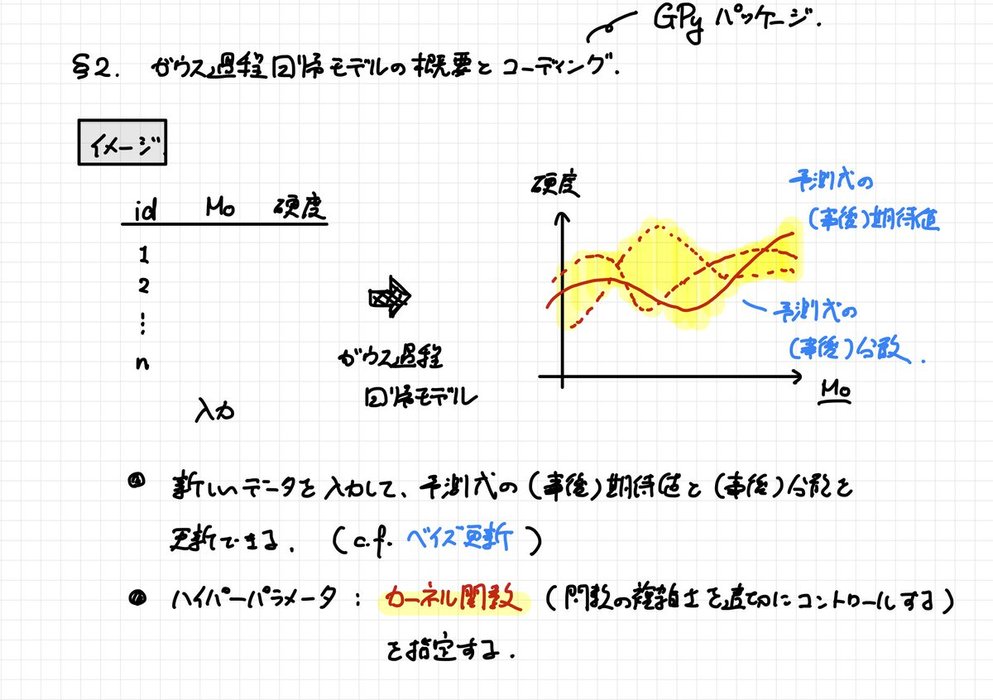 GPy パッケージ.
§2. ガウス過程回帰モデルの概要とコーディング.
イメージ
id Mo 硬度
1
2
⋮
n
入力
ガウス過程
回帰モデル
硬度
予測式の
(事後)期待値
予測式の
(事後)分散.
Mo
新しいデータを入力して、予測式の(事後)期待値と(事後)分散を
更新できる. (c.f. ベイズ更新)
ハイパーパラメータ : カーネル関数 (関数の複雑さを適切にコントロールする)
を指定する.